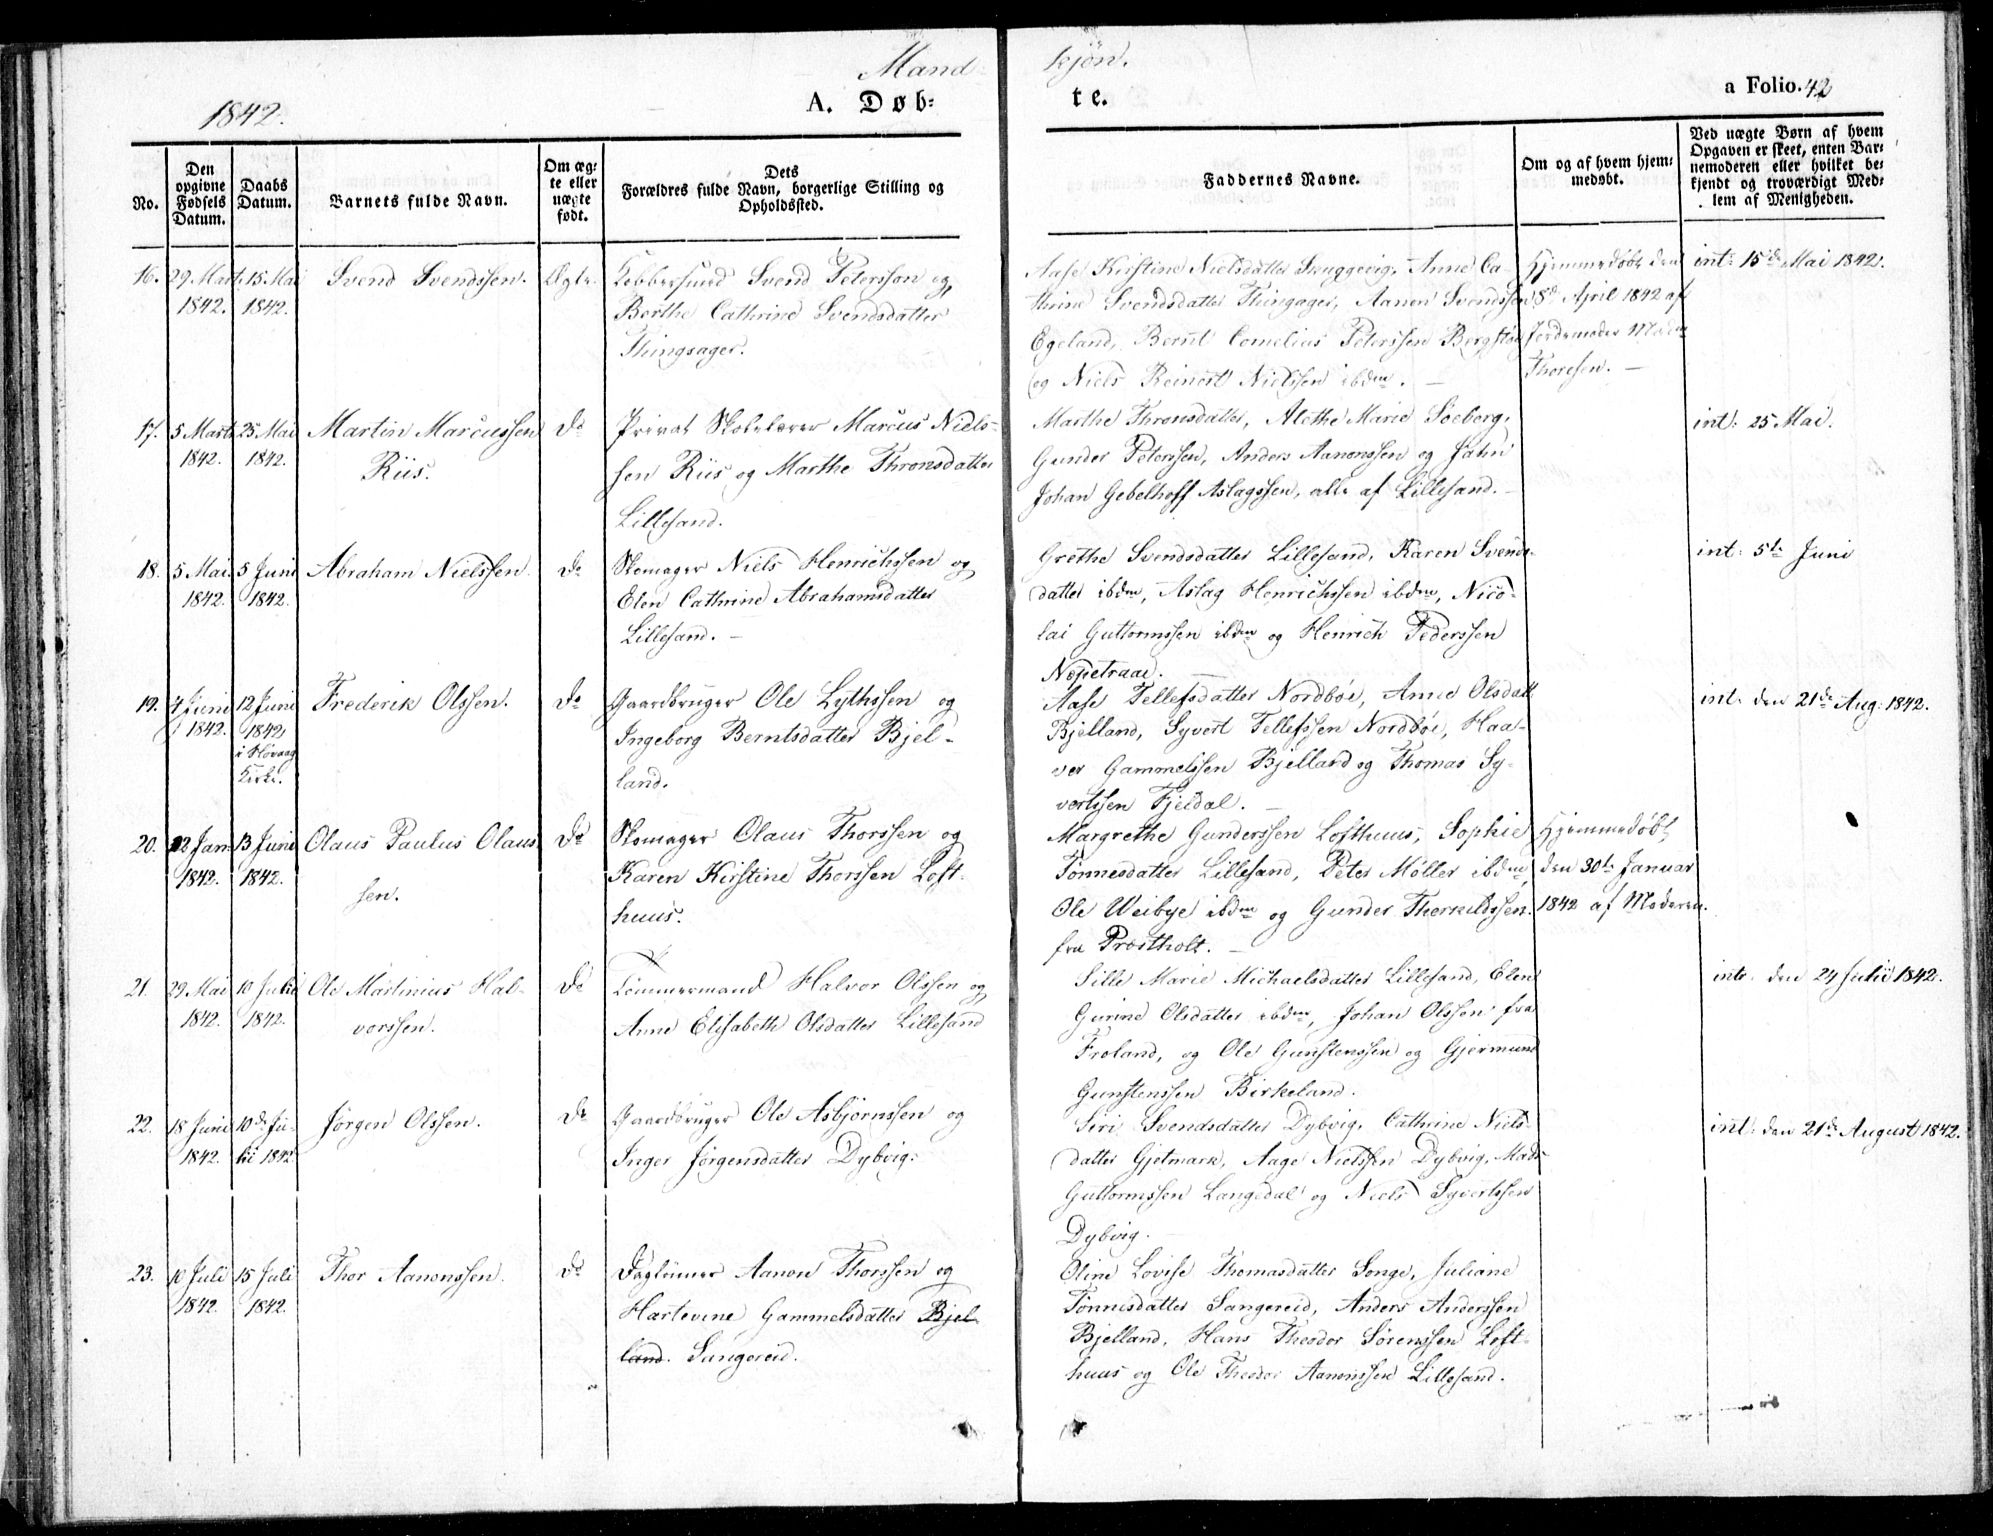 Mand-
kjön.
1842.
A. Døb-
te.
a Folio. 42
No.
Den
opgivne
Fødsels
Datum.
Daabs
Datum.
Barnets fulde Navn.
Om æg-
te eller
uægte
født.
Dets
Forældres fulde Navn, borgerlige Stilling og
Opholdssted.
Faddernes Navne.
Om og af hvem hjem-
medøbt.
Ved uægte Børn af hvem
Opgaven er skeet, enten Bar-
nemoderen eller hvilket be-
kjendt og troværdigt Med-
lem af Menigheden.
16.
29 Marts
1842.
15 Mai
1842.
Svend Svendssen.
Ægte.
Kobbersmed Svend Peterssøn og
Berthe Cathrine Svendsdatter
Thingsager.
Aase Kirstine Nielsdatter Skuggevig, Anne Ca-
thrine Svendsdatter Thingager, Aanon Svendssen
Egeland, Bernt Cornelius Peterssen Bergstøl
og Niels Reinert Nielssen ibdm. —
Hjemmedöbt den
8de April 1842 af
Jordemoder Mdm
Thoresen. —
int: 15de Mai 1842.
17.
5 Marts
1842.
25 Mai
1842.
Martin Marcussen
Riis.
Do
Privat Skolelærer Marcus Niels-
sen Riis og Marthe Thronsdatter
Lillesand.
Marthe Thronsdatter, Alethe Marie Soeberg,
Gunder Peterssen, Anders Aanonssen og Jahn
Johan Gebelhoff Aslagssen, alle af Lillesand. —
int: 25 Mai.
18.
5 Mai.
1842.
5 Juni
1842.
Abraham Nielssen.
Do
Skomager Niels Henrichssen og
Elen Cathrine Abrahamsdatter
Lillesand. —
Grethe Svendsdatter Lillesand, Karen Svends-
datter ibdm, Aslag Henrichssen ibdm, Nico-
lai Guttormssen ibdm og Henrich Pederssen
Nepetraae.
int: 5te Juni
19.
4 Juni
1842.
12 Juni
1842
i Høvaag
Kirke.
Frederik Olssen.
Do
Gaardbruger Ole Lythssen og
Ingeborg Berntsdatter Bjel-
land.
Aase Tellefsdatter Nordböe, Anne Olsdatt
Bjelland, Syvert Tellefssen Nordböe, Haa-
ver Gammelssen Bjelland og Thomas Sy-
vertssen Fjeldal. —
int. den 21de Aug: 1842.
20.
22 Jan.
1842.
13 Juni
1842.
Olaus Paulus Olaus-
sen.
Do
Skomager Olaus Thorssen og
Karen Kirstine Thorssen Loft-
huus.
Margrethe Gunderssen Lofthuus, Sophie
Tönnesdatter Lillesand, Peter Möller ibdm,
Ole Weibye ibdm og Gunder Therkildssen
fra Præstholt. —
Hjemmedöbt
den 30te Januar
1842 af Moderen.
21.
29 Mai
1842.
10 Julii
1842.
Ole Martinius Hal-
vorssen.
Do
Tömmermand Halvor Olssen og
Anne Elisabeth Olsdatter Lillesand
Sille Marie Michaelsdatter Lillesand, Elen
Gurine Olsdatter ibdm, Johan Olssen fra
Froland, og Ole Gunstenssen og Gjermund
Gunstenssen Birkeland.
intr. den 24 Julii 1842.
22.
18 Juni
1842.
10de Ju-
lii 1842
Jørgen Olssen.
Do
Gaardbruger Ole Asbjörnssen og
Inger Jörgensdatter Dybvig.
Siri Svendsdatter Dybvig, Cathrine Niels-
datter Gjetmark, Aage Nielssen Dybvig, Mads
Guttormssen Langedal og Niels Syvertssen
Dybvig.
int: den 21de August 1842.
23.
10 Juli
1842.
15 Juli
1842.
Thor Aanonssen.
Do
Daglönner Aanon Thorssen og
Hartevine Gammelsdatter Bjel-
land. Sangereid.
Oline Lovise Thomasdatter Songe, Juliane
Tönnisdatter Sangereid, Anders Anderssen
Bjelland, Hans Theodor Sörenssen Loft-
huus og Ole Theodor Aanonssen Lillesand.